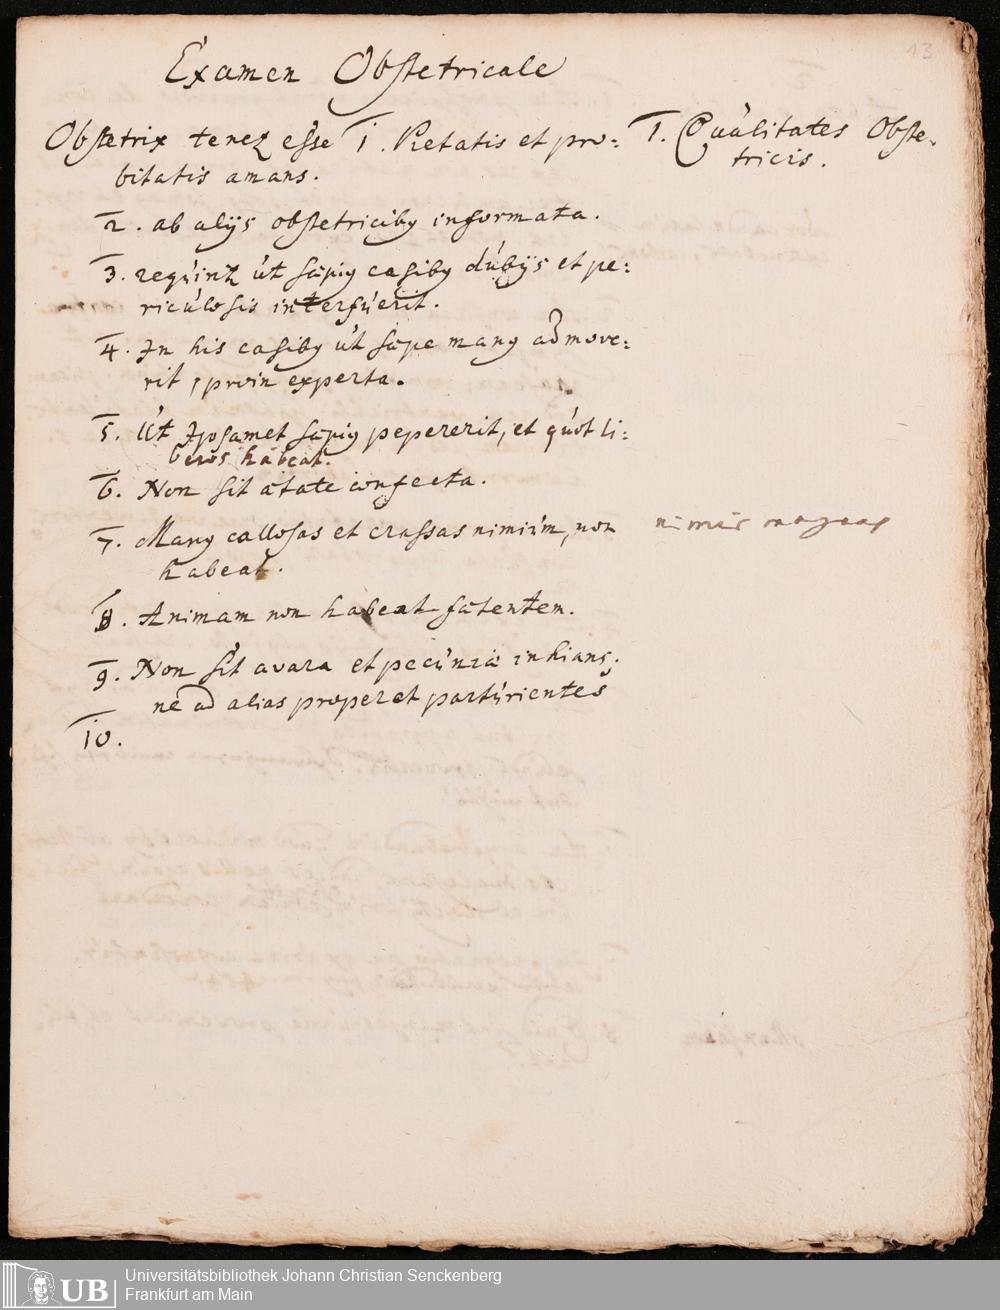 13
Examen Obstetricale
Obstetrix tenetur esse 1. Pietatis et pro-
bitatis amans.
1. Qualitates Obste-
tricis.
2. ab alijs obstetricibus informata.
3. requiritur út sæpius casibus dúbijs et pe-
riculosis interfúerit.
4. In his casibus út sæpe manus admove-
rit, proin experta.
5. Út Ipsamet sæpius pepererit, et qúot li-
beros habeat.
6. Non sit ætate confecta.
7. Manus callosas et crassas nimiúm, non
habeat.
nimis magnas
8. Animam non habeat fætentem.
9. Non sit avara et pecúniæ inhians,
ne ad alias properet partúrientes
10.
UB
Universitätsbibliothek Johann Christian Senckenberg
Frankfurt am Main